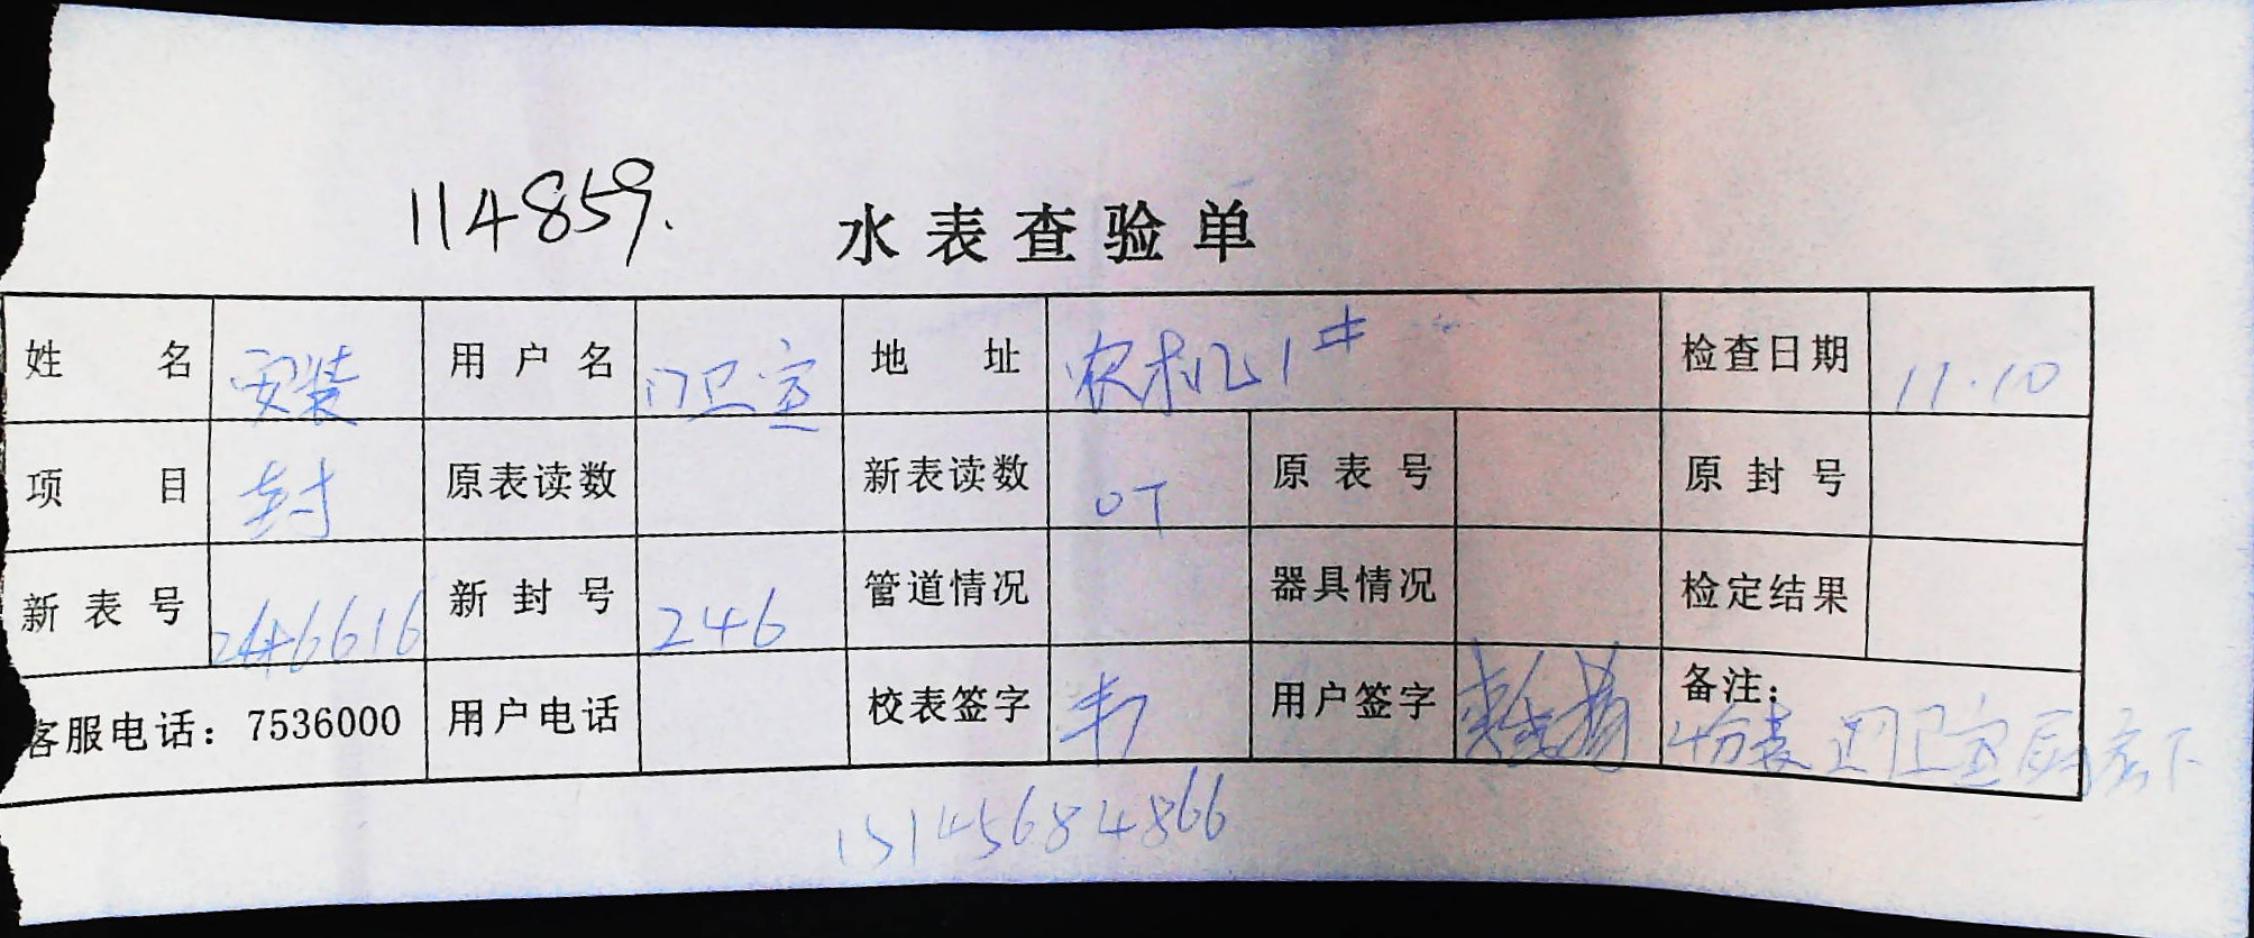 114859.
水表查验单
姓名 安装 用户名 门卫室 地址 农机1# 检查日期 11.10
项目 封 原表读数 新表读数 0T 原表号 原封号
新表号 2446616 新封号 246 管道情况 器具情况 检定结果
客服电话：7536000 用户电话 校表签字 用户签字 备注：
4分表 门卫室厨房下
15145684866